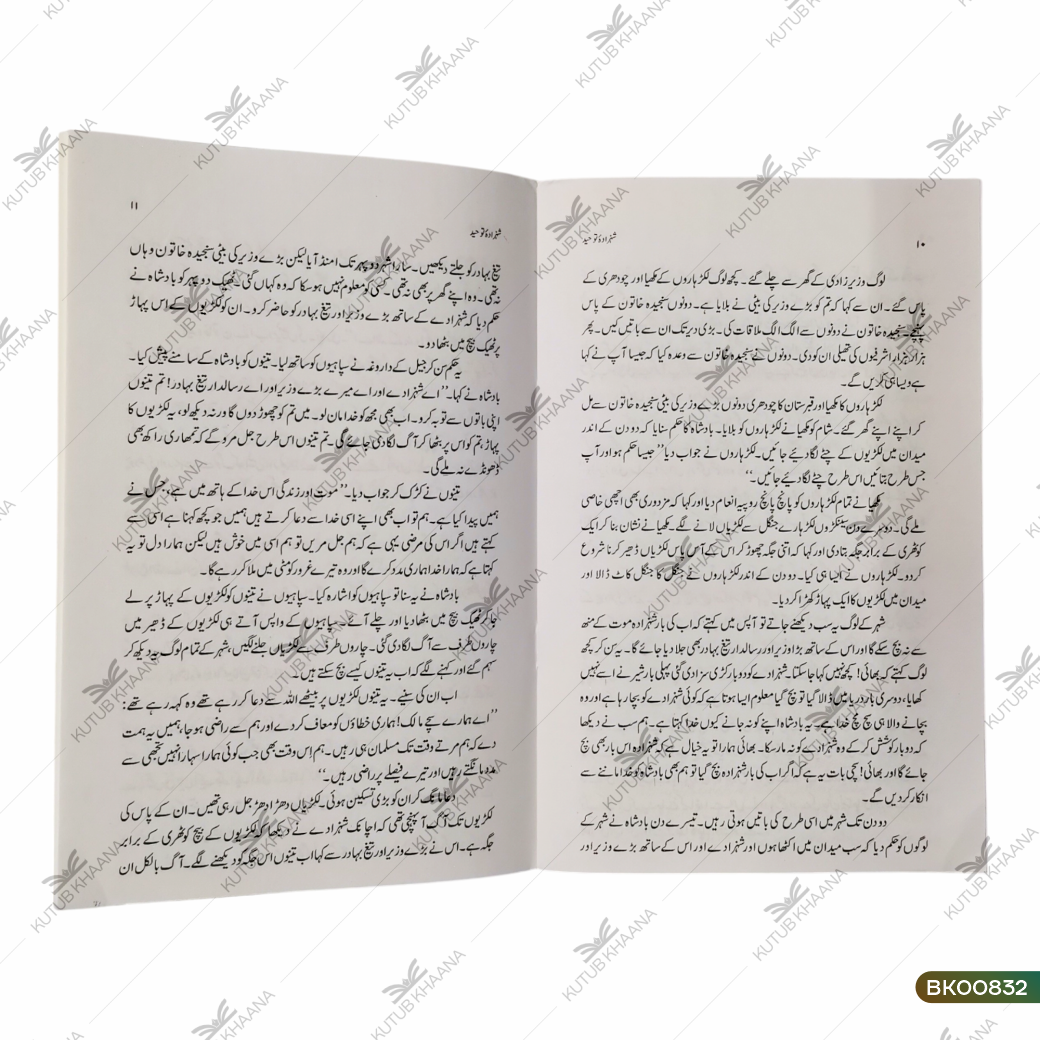 ۱۰
شہزادۂ توحید
لوگ وزیر زادی کے گھر سے چلے گئے۔ کچھ لوگ لکڑہاروں کے مکھیا اور چودھری کے
پاس گئے۔ ان سے کہا کہ تم کو بڑے وزیر کی بیٹی نے بلایا ہے۔ دونوں سنجیدہ خاتون کے پاس
پہنچے۔ سنجیدہ خاتون نے دونوں سے الگ الگ ملاقات کی۔ بڑی دیر تک ان سے باتیں کیں۔ پھر
ہزار ہزار اشرفیوں کی تھیلی ان کو دی۔ دونوں نے سنجیدہ خاتون سے وعدہ کیا کہ جیسا آپ نے کہا
ہے ویسا ہی کریں گے۔
لکڑہاروں کا مکھیا اور قبرستان کا چودھری دونوں بڑے وزیر کی بیٹی سنجیدہ خاتون سے مل
کر اپنے اپنے گھر گئے۔ شام کو مکھیا نے لکڑہاروں کو بلایا۔ بادشاہ کا حکم سنایا کہ دو دن کے اندر
میدان میں لکڑیوں کے چٹے لگا دیئے جائیں۔ لکڑہاروں نے جواب دیا ’’جیسا حکم ہو اور آپ
جس طرح بتائیں اس طرح چٹے لگا دیئے جائیں۔‘‘
مکھیا نے تمام لکڑہاروں کو پانچ پانچ روپیہ انعام دیا اور کہا کہ مزدوری بھی اچھی خاصی
ملے گی۔ دوسرے دن سینکڑوں لکڑہارے جنگل سے لکڑیاں لانے لگے۔ مکھیا نے نشان بنا کر ایک
کوٹھری کے برابر جگہ بتا دی اور کہا کہ اتنی جگہ چھوڑ کر اس کے آس پاس لکڑیاں ڈھیر کرنا شروع
کردو۔ لکڑہاروں نے ایسا ہی کیا۔ دو دن کے اندر لکڑہاروں نے جنگل کا جنگل کاٹ ڈالا اور
میدان میں لکڑیوں کا ایک پہاڑ کھڑا کر دیا۔
شہر کے لوگ یہ سب دیکھنے جاتے تو آپس میں کہتے کہ اب کی بار شہزادہ موت کے منھ
سے نہ بچ سکے گا اور اس کے ساتھ بڑا وزیر اور رسالدار تیغ بہادر بھی جلا دیا جائے گا۔ یہ سن کر کچھ
لوگ کہتے کہ بھائی! کچھ نہیں کہا جا سکتا۔ شہزادے کو دو بار کڑی سزا دی گئی پہلی بار شیر نے اسے نہیں
کھایا، دوسری بار دریا میں ڈالا گیا تو بچ گیا معلوم ایسا ہوتا ہے کہ کوئی شہزادے کو بچا رہا ہے اور وہ
بچانے والا ہی سچ مچ خدا ہے۔ یہ بادشاہ اپنے کو نہ جانے کیوں خدا کہتا ہے۔ ہم سب نے دیکھا
کہ دو بار کوشش کر کے وہ شہزادے کو نہ مار سکا۔ بھائی ہمارا تو یہ خیال ہے کہ شہزادہ اس بار بھی بچ
جائے گا اور بھائی! سچی بات یہ ہے کہ اگر اب کی بار شہزادہ بچ گیا تو ہم بھی بادشاہ کو خدا ماننے سے
انکار کر دیں گے۔
دو دن تک شہر میں اسی طرح کی باتیں ہوتی رہیں۔ تیسرے دن بادشاہ نے شہر کے
لوگوں کو حکم دیا کہ سب میدان میں اکٹھا ہوں اور شہزادے اور اس کے ساتھ بڑے وزیر اور
۱۱
شہزادۂ توحید
تیغ بہادر کو جلتے دیکھیں۔ سارا شہر دوپہر تک امنڈ آیا لیکن بڑے وزیر کی بیٹی سنجیدہ خاتون وہاں
نہ تھی۔ وہ اپنے گھر پر بھی نہ تھی۔ کسی کو معلوم نہیں ہو سکا کہ وہ کہاں گئی۔ ٹھیک دوپہر کو بادشاہ نے
حکم دیا کہ شہزادے کے ساتھ بڑے وزیر اور تیغ بہادر کو حاضر کرو۔ ان کو لکڑیوں کے اس پہاڑ
پر ٹھیک بیچ میں بٹھا دو۔
یہ حکم سن کر جیل کے داروغہ نے سپاہیوں کو ساتھ لیا۔ تینوں کو بادشاہ کے سامنے پیش کیا۔
بادشاہ نے کہا۔ ’’اے شہزادے اور اے میرے بڑے وزیر اور اے رسالدار تیغ بہادر! تم تینوں
اپنی باتوں سے توبہ کرو۔ اب بھی مجھ کو خدا مان لو۔ میں تم کو چھوڑ دوں گا ورنہ دیکھ لو، یہ لکڑیوں کا
پہاڑ، تم کو اس پر بٹھا کر آگ لگا دی جائے گی۔ تم تینوں اس طرح جل مرو گے کہ تمھاری راکھ بھی
ڈھونڈے نہ ملے گی۔
تینوں نے کڑک کر جواب دیا۔ ’’موت اور زندگی اس خدا کے ہاتھ میں ہے، جس نے
ہمیں پیدا کیا ہے۔ ہم تو اب بھی اپنے اسی خدا سے دعا کرتے ہیں ہمیں جو کچھ کہنا ہے اسی سے
کہتے ہیں اگر اس کی مرضی یہی ہے کہ ہم جل مریں تو ہم اسی میں خوش ہیں لیکن ہمارا دل تو یہ
کہتا ہے کہ ہمارا خدا ہماری مدد کرے گا اور وہ تیرے غرور کو مٹی میں ملا کر رہے گا۔
بادشاہ نے یہ سنا تو سپاہیوں کو اشارہ کیا۔ سپاہیوں نے تینوں کو لکڑیوں کے پہاڑ پر لے
جا کر ٹھیک بیچ میں بٹھا دیا اور چلے آئے۔ سپاہیوں کے واپس آتے ہی لکڑیوں کے ڈھیر میں
چاروں طرف سے آگ لگا دی گئی۔ چاروں طرف سے لکڑیاں جلنے لگیں، شہر کے تمام لوگ یہ دیکھ کر
سہم گئے اور کہنے لگے کہ اب یہ تینوں کیسے بچ سکتے ہیں۔
اب ان کی سنیے۔ یہ تینوں لکڑیوں پر بیٹھے اللہ سے دعا کر رہے تھے وہ کہہ رہے تھے:
’’اے ہمارے سچے مالک! ہماری خطاؤں کو معاف کر دے اور ہم سے راضی ہو جا، ہمیں یہ ہمت
دے کہ ہم مرتے وقت تک مسلمان ہی رہیں۔ ہم اس وقت بھی جب کوئی ہمارا سہارا نہیں تجھی سے
مدد مانگتے رہیں اور تیرے فیصلے پر راضی رہیں۔‘‘
دعا مانگ کر ان کو بڑی تسکین ہوئی۔ لکڑیاں دھڑا دھڑ جل رہی تھیں۔ ان کے پاس کی
لکڑیوں تک آگ آ پہنچی تھی کہ اچانک شہزادے نے دیکھا کہ لکڑیوں کے بیچ کوٹھری کے برابر
جگہ ہے۔ اس نے بڑے وزیر اور تیغ بہادر سے کہا اب تینوں اس جگہ کو دیکھنے لگے۔ آگ بالکل ان
KUTUB KHAANA
BK00832